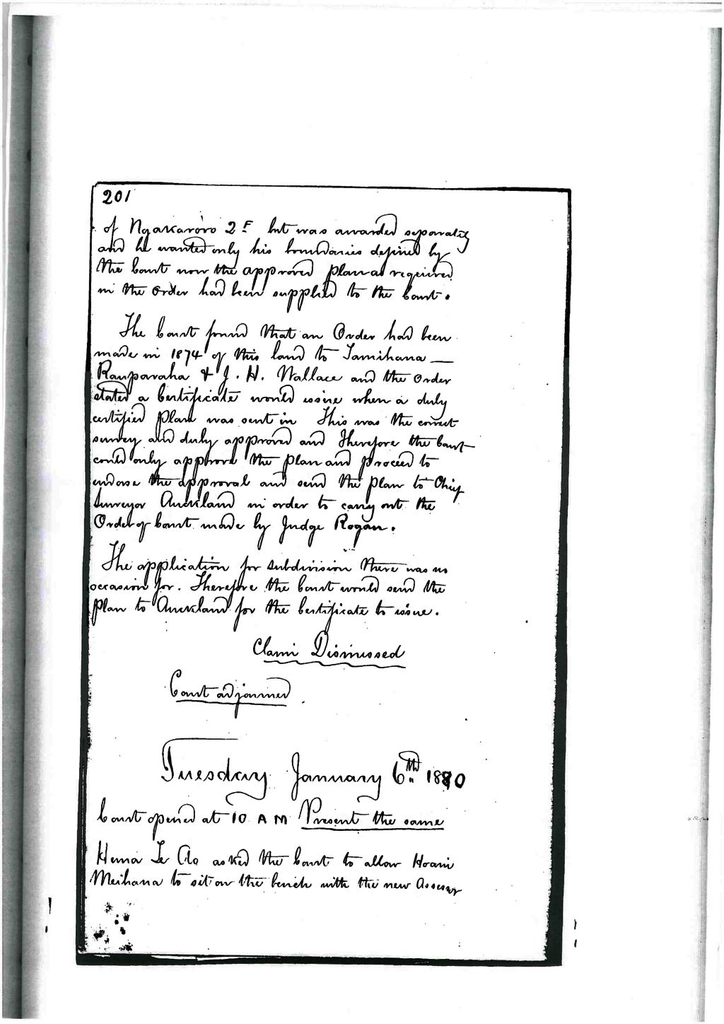 201
of Ngakaroro 2F but was awarded separately
and he wanted only his boundaries defined by
the Court now the approved plan as required
in the Order had been supplied to the Court.
The Court found that an Order had been
made in 1874 of this land to Tamihana
Rauparaha & J. H. Wallace and the Order
stated a Certificate would issue when a duly
certified Plan was sent in This was the correct
survey and duly approved and Therefore the Court
could only approve the plan and proceed to
endorse the approval and send the Plan to Chief
Surveyor Auckland in order to carry out the
Order of Court made by Judge Rogan.
The application for subdivision there was no
occasion for. Therefore the Court would send the
plan to Auckland for the Certificate to issue.
Claim Dismissed
Court adjourned.
Tuesday January 6th. 1880
Court opened at 10 AM Present the same
Hema Te Ao asked the Court to allow Hoani
Meihana to sit on the bench with the new Assessor